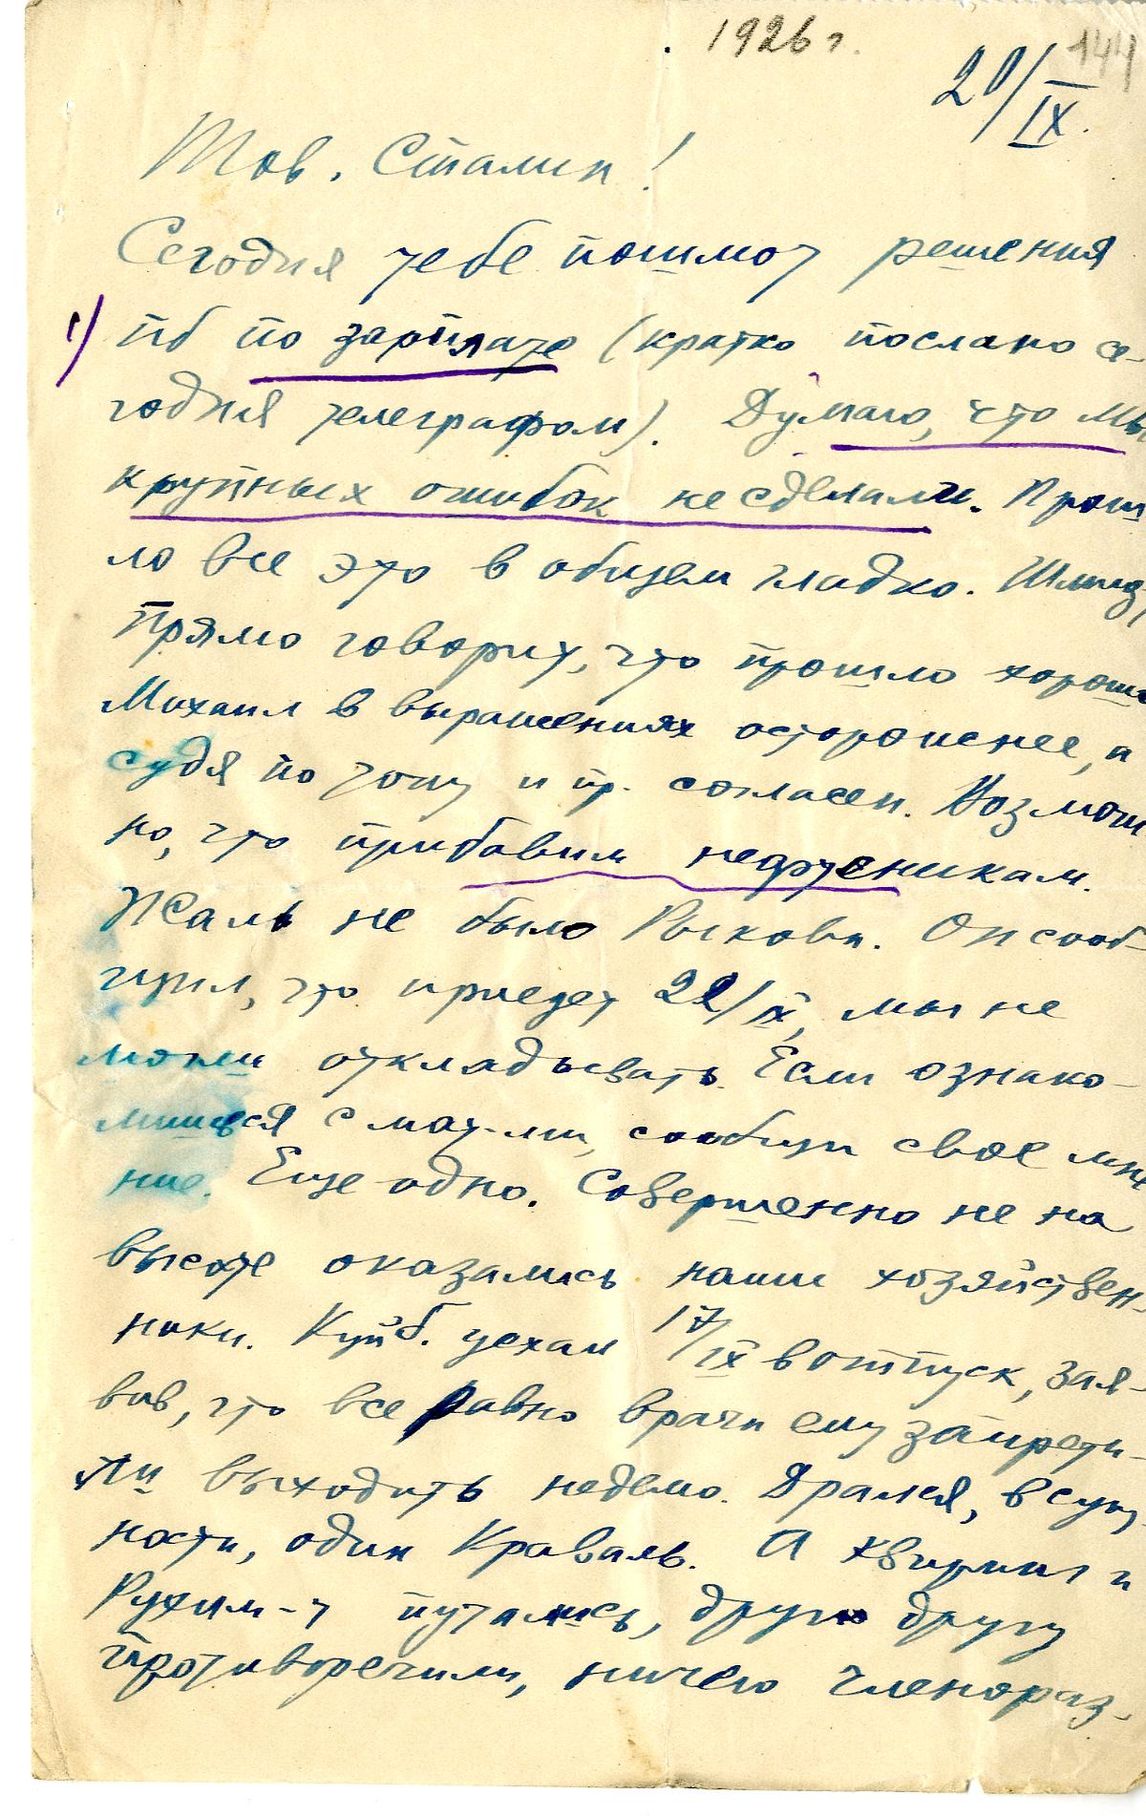 1926 г.
144
20/IX.
Тов. Сталин!
Сегодня тебе пошлют решения
1) ПБ по зарплате (кратко послано се-
годня телеграфом). Думаю, что мы
крупных ошибок не сделали. Прош-
ло все это в общем гладко. Шмидт
прямо говорит, что прошло хорошо
Михаил в выражениях осторожнее, а
судя по тону и пр. согласен. Возмож
но, что прибавим
Жаль не было Рыкова. Он сооб-
щил, что приедет 22/IX, мы не
могли откладывать. Если ознако-
мишься с мат-ми, сообщи свое мне
ние. Еще одно. Совершенно не на
высоте оказались наши хозяйствен-
ники. Куйб. уехал 17/IX в отпуск, зая-
вив, что все равно врачи ему запрети-
ли выходить неделю. Дрался, в сущ-
ности, один Краваль. А Квиринг и
Рухим-ч путались, друг другу
противоречили, ничего членораз-